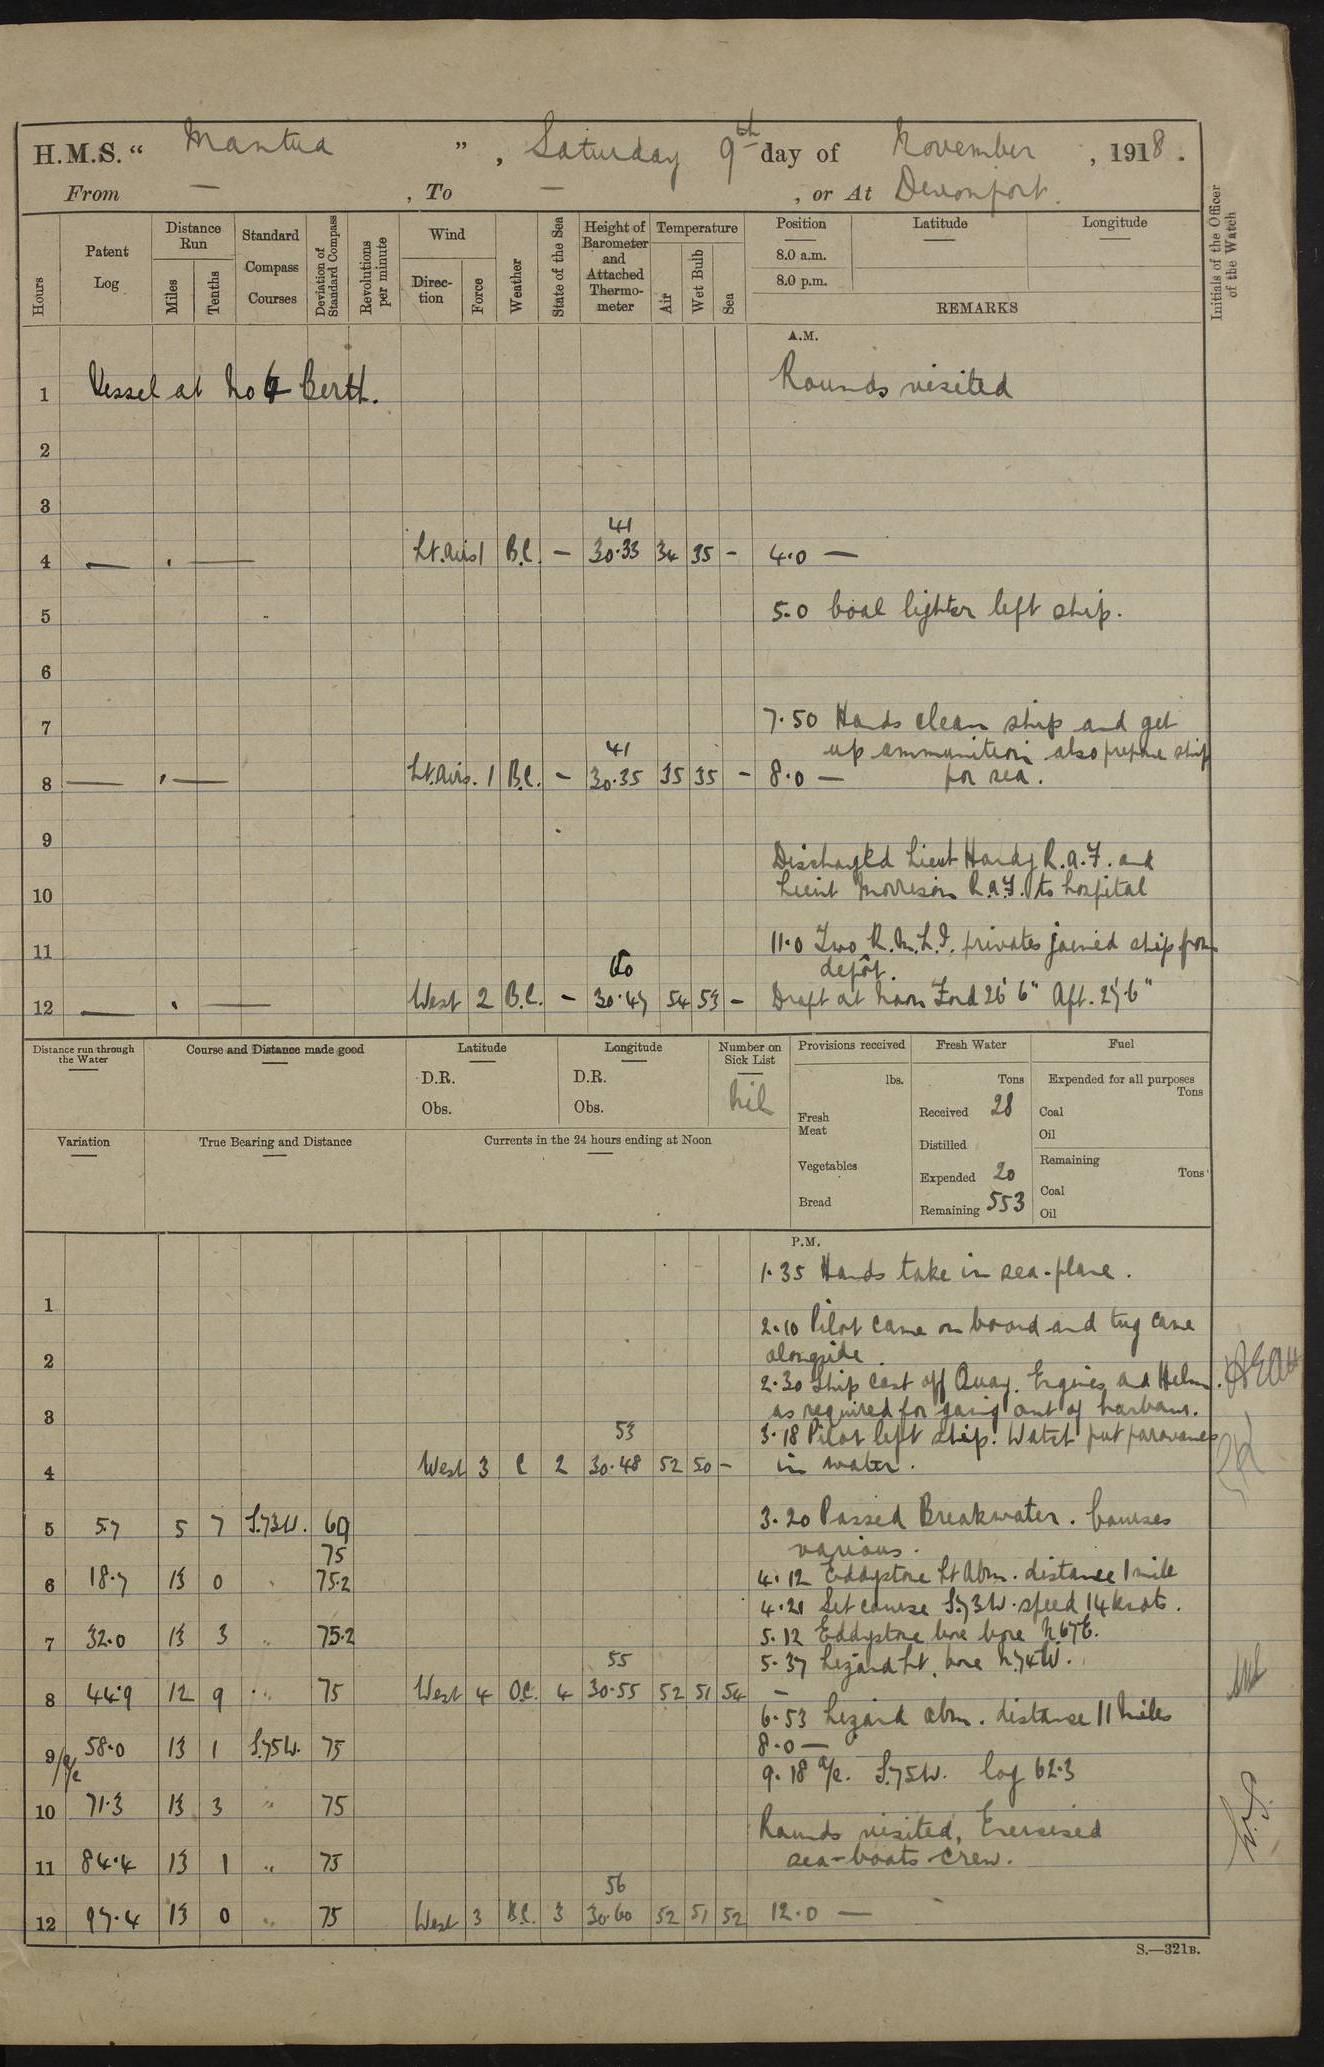 H.M.S. " Mantua " , Saturday 9th day of November , 1918 .
From — , To — , or At Devonport.
Hours
Patent Log
Distance Run
Miles
Tenths
Standard Compass Courses
Deviation of Standard Compass
Revolutions per minute
Wind
Direction
Force
Weather
State of the Sea
Height of Barometer and Attached Thermometer
Temperature
Air
Wet Bulb
Sea
Position
8.0 a.m.
8.0 p.m.
Latitude
Longitude
REMARKS
Initials of the Officer of the Watch
A.M.
1 Vessel at No Berth. Rounds visited
2
3
41
4 — . — Lt. airs 1 B.C. — 30.33 34 35 — 4.0 —
5 5.0 Coal lighter left ship.
6
7 7.50 Hands clean ship and get
41 up ammunition also prepare ship
8 — . — Lt. airs. 1 B.C. — 30.35 35 35 — 8.0 — for sea.
9
Discharged Lieut Hardy R.A.F. and
10 Lieut Morrison R.A.F. to hospital
11 11.0 Two R.M.L.I. privates joined ship from
60 depôt.
12 — . — West 2 B.C. — 30.47 54 53 — Draft at Noon Ford 26' 6" Aft. 27' 6"
Distance run through the Water
Course and Distance made good
Latitude
D.R.
Obs.
Longitude
D.R.
Obs.
Number on Sick List
Nil
Provisions received
lbs.
Fresh Meat
Vegetables
Bread
Fresh Water
Tons
Received 28
Distilled
Expended 20
Remaining 553
Fuel
Expended for all purposes
Tons
Coal
Oil
Remaining
Tons
Coal
Oil
Variation
True Bearing and Distance
Currents in the 24 hours ending at Noon
P.M.
1.35 Hands take in sea-plane.
1
2.10 Pilot came on board and tug came
2 alongside.
2.30 Ship cast off Quay. Engines and Helm
3 as required for going out of harbour.
53 3.18 Pilot left ship. Watch put paravanes
4 West 3 C 2 30.48 52 50 — in water.
5 5.7 5 7 S.73W. 60 3.20 Passed Breakwater. Courses
75 various.
6 18.7 13 0 " 75.2 4.12 Eddystone Lt Abm. distance 1 mile
4.21 Set course S.73W. speed 14 knots.
7 32.0 13 3 " 75.2 5.12 Eddystone bore bore N.67E.
55 5.37 Lizard Lt. bore N74W.
8 44.9 12 9 " 75 West 4 O.C. 4 30.55 52 51 54 —
6.53 Lizard abm. distance 11 miles
9 a/c 58.0 13 1 S.75W. 75 8.0 —
9.18 a/c. S.75W. log 62.3
10 71.3 13 3 " 75
Rounds visited, Exercised
11 84.4 13 1 " 75 sea-boats crew.
56
12 97.4 13 0 " 75 West 3 B.C. 3 30.60 52 51 52 12.0 —
S.—321B.